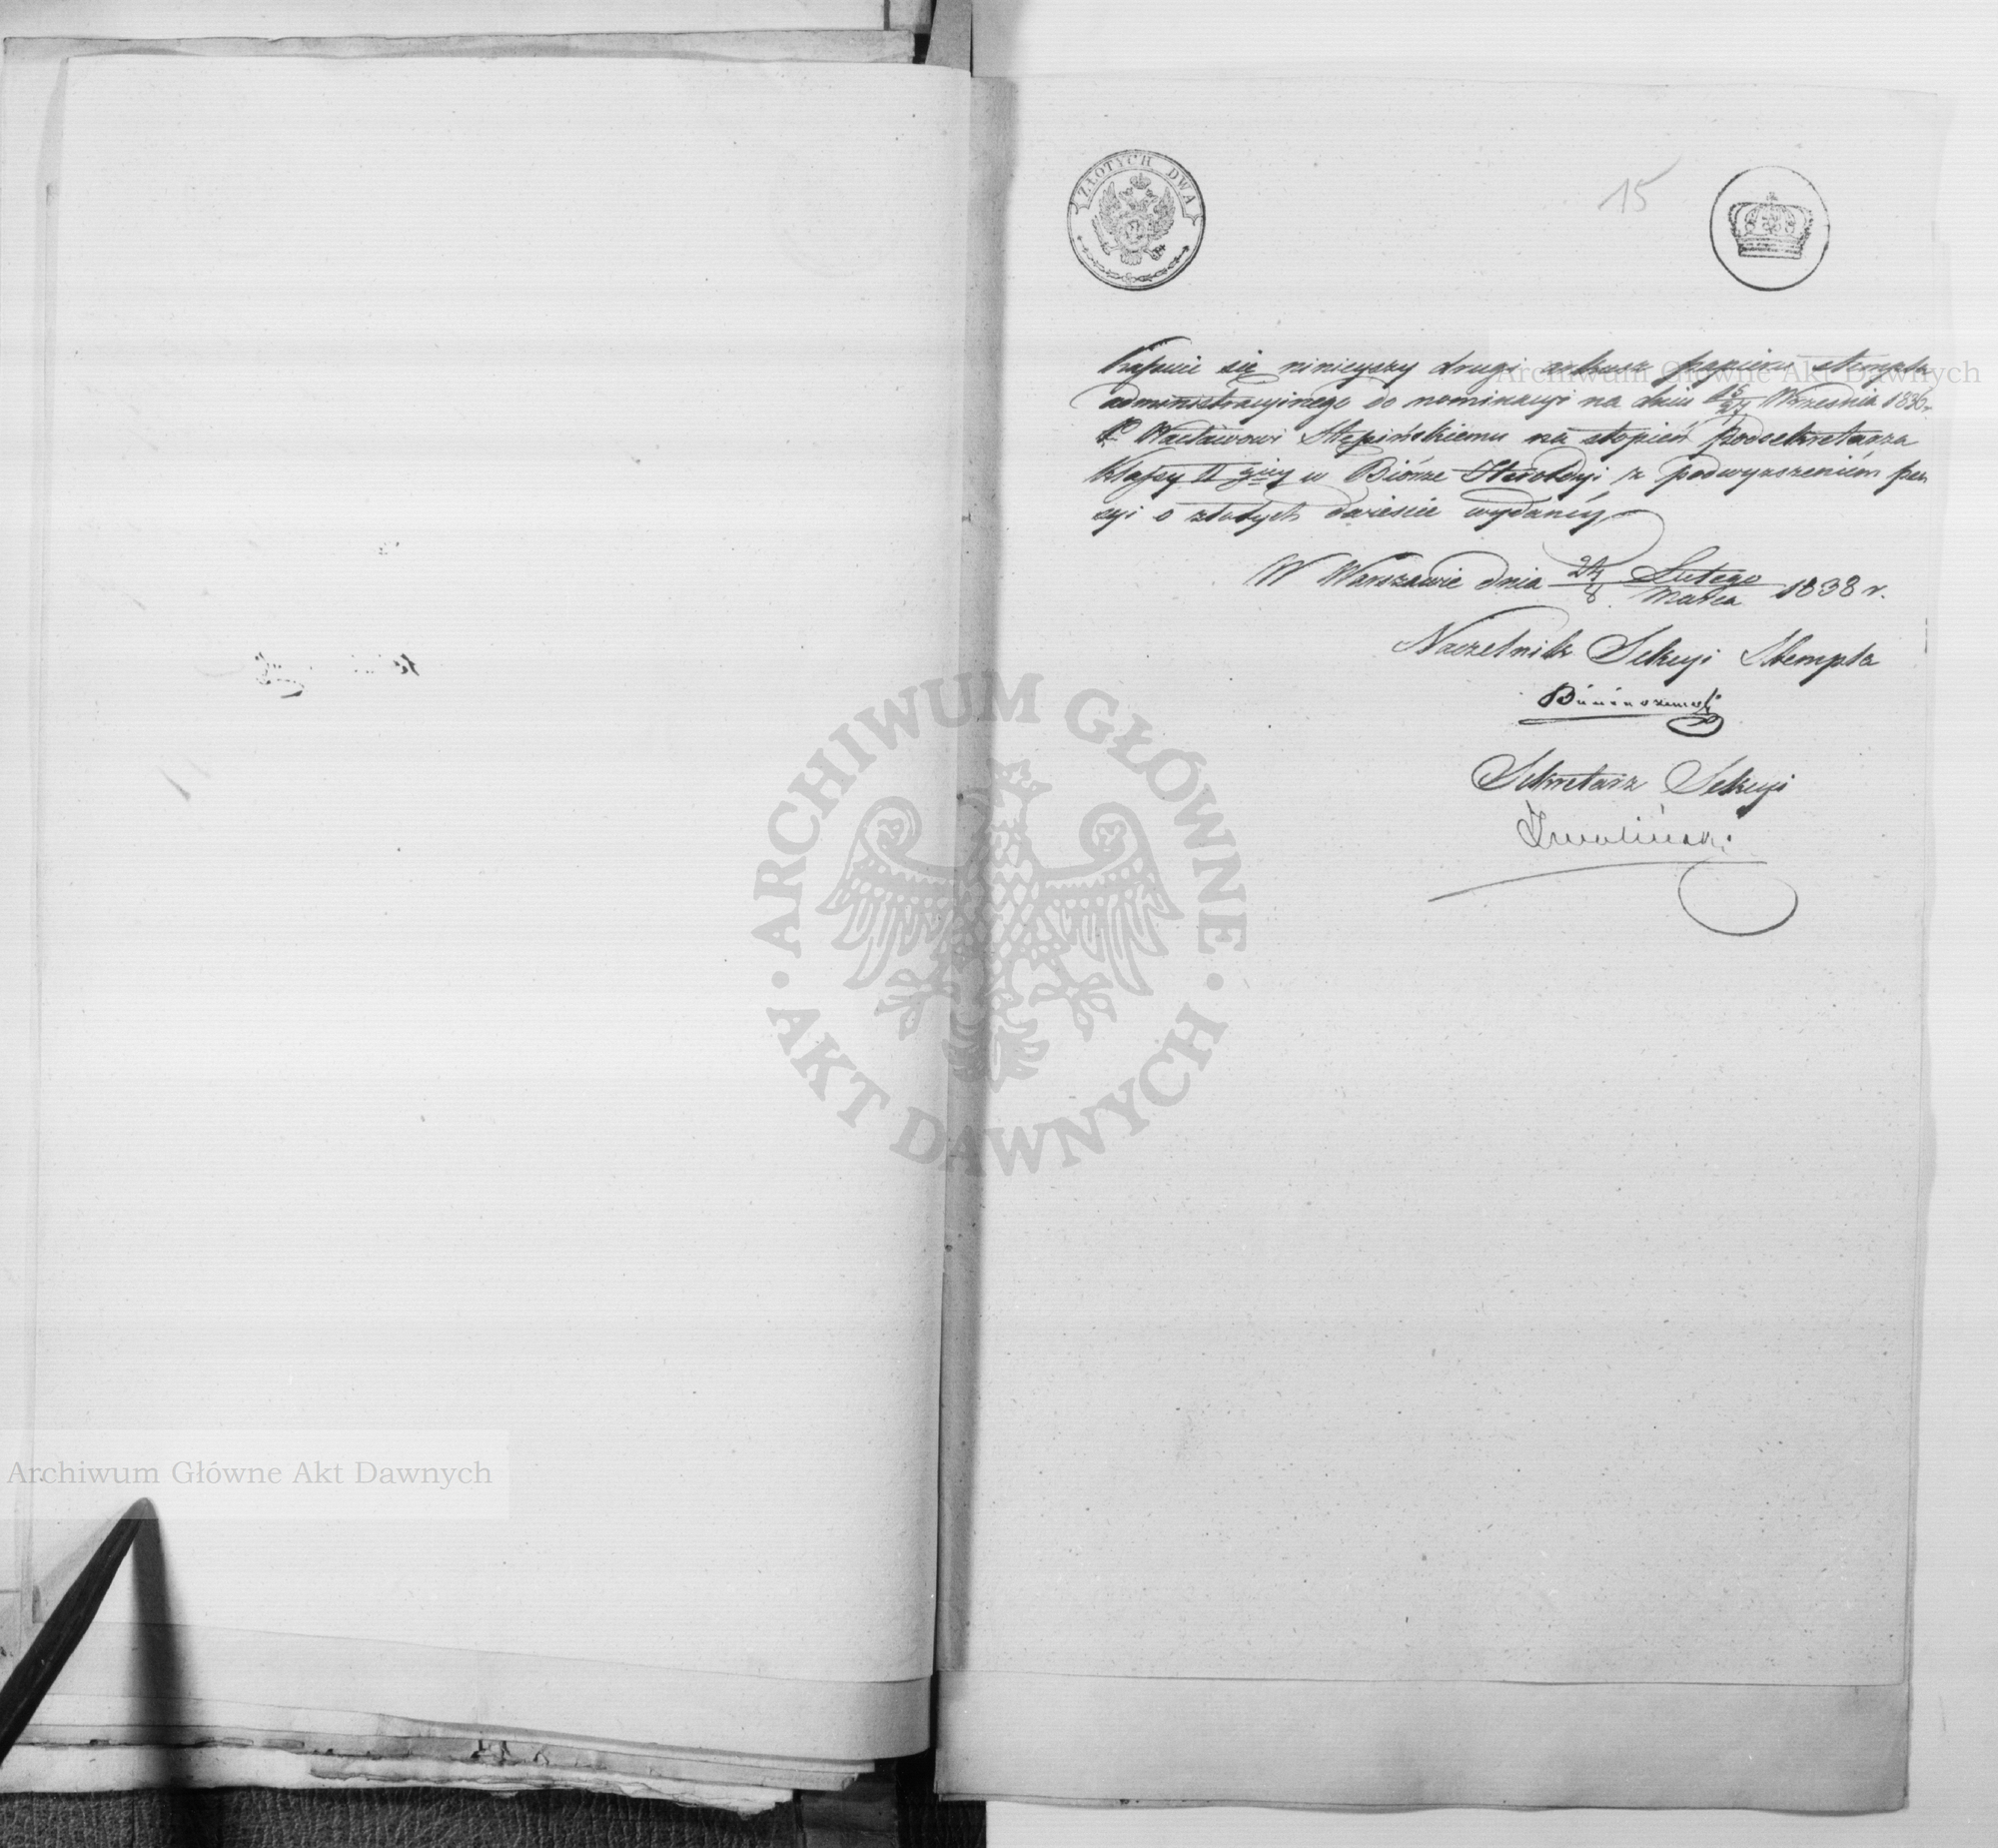 ZŁOTYCH DWA
15
Kassuie się ninieyszy drugi arkusz papieru stempla
administracyinego do nominacyi na dniu 15/27 Września 1836 r.
P. Wacławowi Stępińskiemu na stopień Podsekretarza
Klassy II giey w Biórze Heroldyi z podwyższeniem pen
syi o złotych dwieście wydaney
W Warszawie dnia 24/8 Lutego/Marca 1838 r.
Naczelnik Sekcyi Stempla
Sekretarz Sekcyi
Archiwum Główne Akt Dawnych
ARCHIWUM GŁÓWNE
AKT DAWNYCH
Archiwum Główne Akt Dawnych